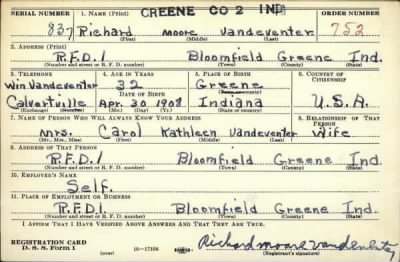 SERIAL NUMBER 1. NAME (Print) GREENE CO 2 IND ORDER NUMBER
837 Richard moore Vandeventer 752
(First) (Middle) (Last)
2. ADDRESS (Print)
R.F.D.1 Bloomfield Greene Ind.
(Number and street or R. F. D. number) (Town) (County) (State)
3. TELEPHONE 4. AGE IN YEARS 5. PLACE OF BIRTH 6. COUNTRY OF CITIZENSHIP
Win Vandeventer 32 Greene
DATE OF BIRTH
Calvertville Apr. 30 1908 Indiana U.S.A.
(Exchange) (Number) (Mo.) (Day) (Yr.) (State or country)
7. NAME OF PERSON WHO WILL ALWAYS KNOW YOUR ADDRESS 8. RELATIONSHIP OF THAT PERSON
mrs. Carol Kathleen Vandeventer Wife
(Mr., Mrs., Miss) (First) (Middle) (Last)
9. ADDRESS OF THAT PERSON
R.F.D.1 Bloomfield Greene Ind.
(Number and street or R. F. D. number) (Town) (County) (State)
10. EMPLOYER'S NAME
Self.
11. PLACE OF EMPLOYMENT OR BUSINESS
R.F.D1. Bloomfield Greene Ind.
(Number and street or R. F. D. number) (Town) (County) (State)
I AFFIRM THAT I HAVE VERIFIED ABOVE ANSWERS AND THAT THEY ARE TRUE.
REGISTRATION CARD
D. S. S. Form 1 (over) 16-17105 Richard moore Vandeventer
(Registrant's signature)